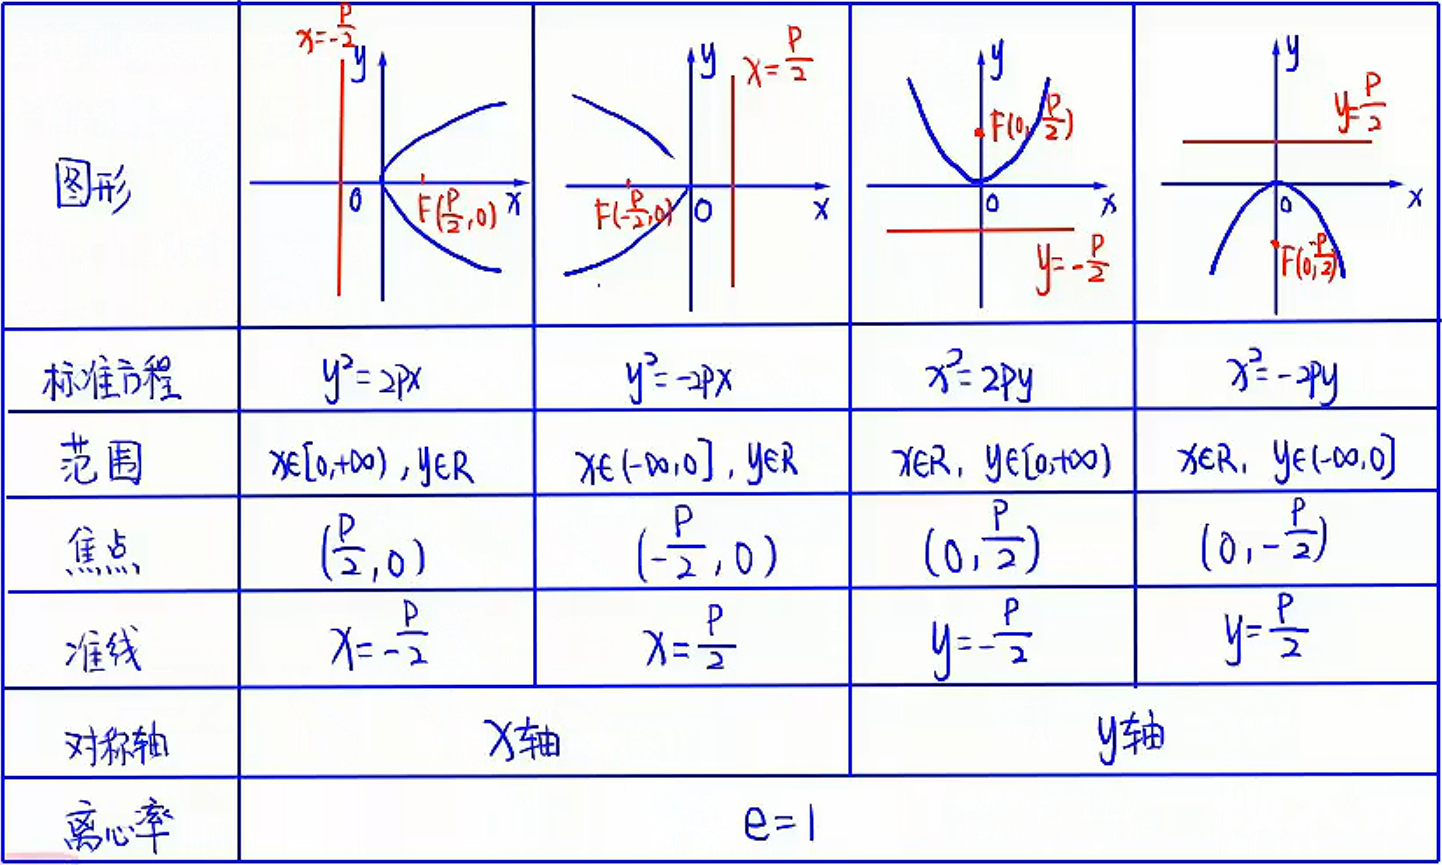 图形
x=-p/2
y
0
F(p/2,0)
x
y
x=p/2
F(-p/2,0)
0
x
y
F(0,p/2)
0
x
y=-p/2
y
y=p/2
0
x
F(0,-p/2)
标准方程 y²=2px y²=-2px x²=2py x²=-2py
范围 x∈[0,+∞),y∈R x∈(-∞,0],y∈R x∈R,y∈[0,+∞) x∈R,y∈(-∞,0]
焦点 (p/2,0) (-p/2,0) (0,p/2) (0,-p/2)
准线 x=-p/2 x=p/2 y=-p/2 y=p/2
对称轴 x轴 y轴
离心率 e=1